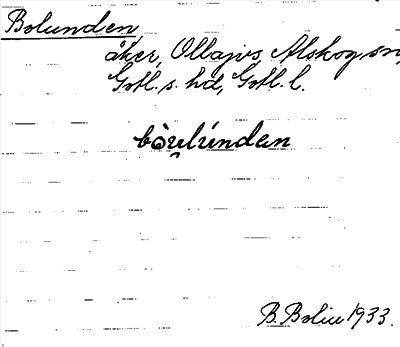 Bolunden,
åker, Ollajvs, Alskog sn,
Gotl. s. hd, Gotl. l.
bòu̯lúndan
B. Bolin 1933.